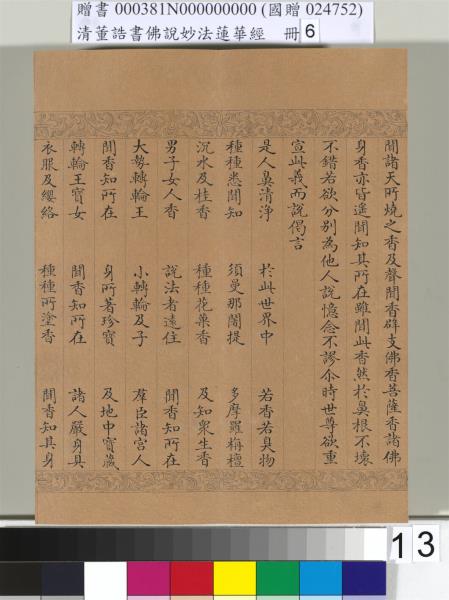 贈書 000381N000000000 (國贈 024752)
清董誥書佛說妙法蓮華經　冊 6
聞諸天所燒之香及聲聞香辟支佛香菩薩香諸佛
身香亦皆遙聞知其所在雖聞此香然於鼻根不壞
不錯若欲分別為他人說憶念不謬尒時世尊欲重
宣此義而說偈言
是人鼻清淨　於此世界中　若香若臭物
種種悉聞知　須曼那闍提　多摩羅栴檀
沉水及桂香　種種花菓香　及知眾生香
男子女人香　說法者遠住　聞香知所在
大勢轉輪王　小轉輪及子　羣臣諸宮人
聞香知所在　身所著珍寶　及地中寶藏
轉輪王寶女　聞香知所在　諸人嚴身具
衣服及纓絡　種種所塗香　聞香知其身
13